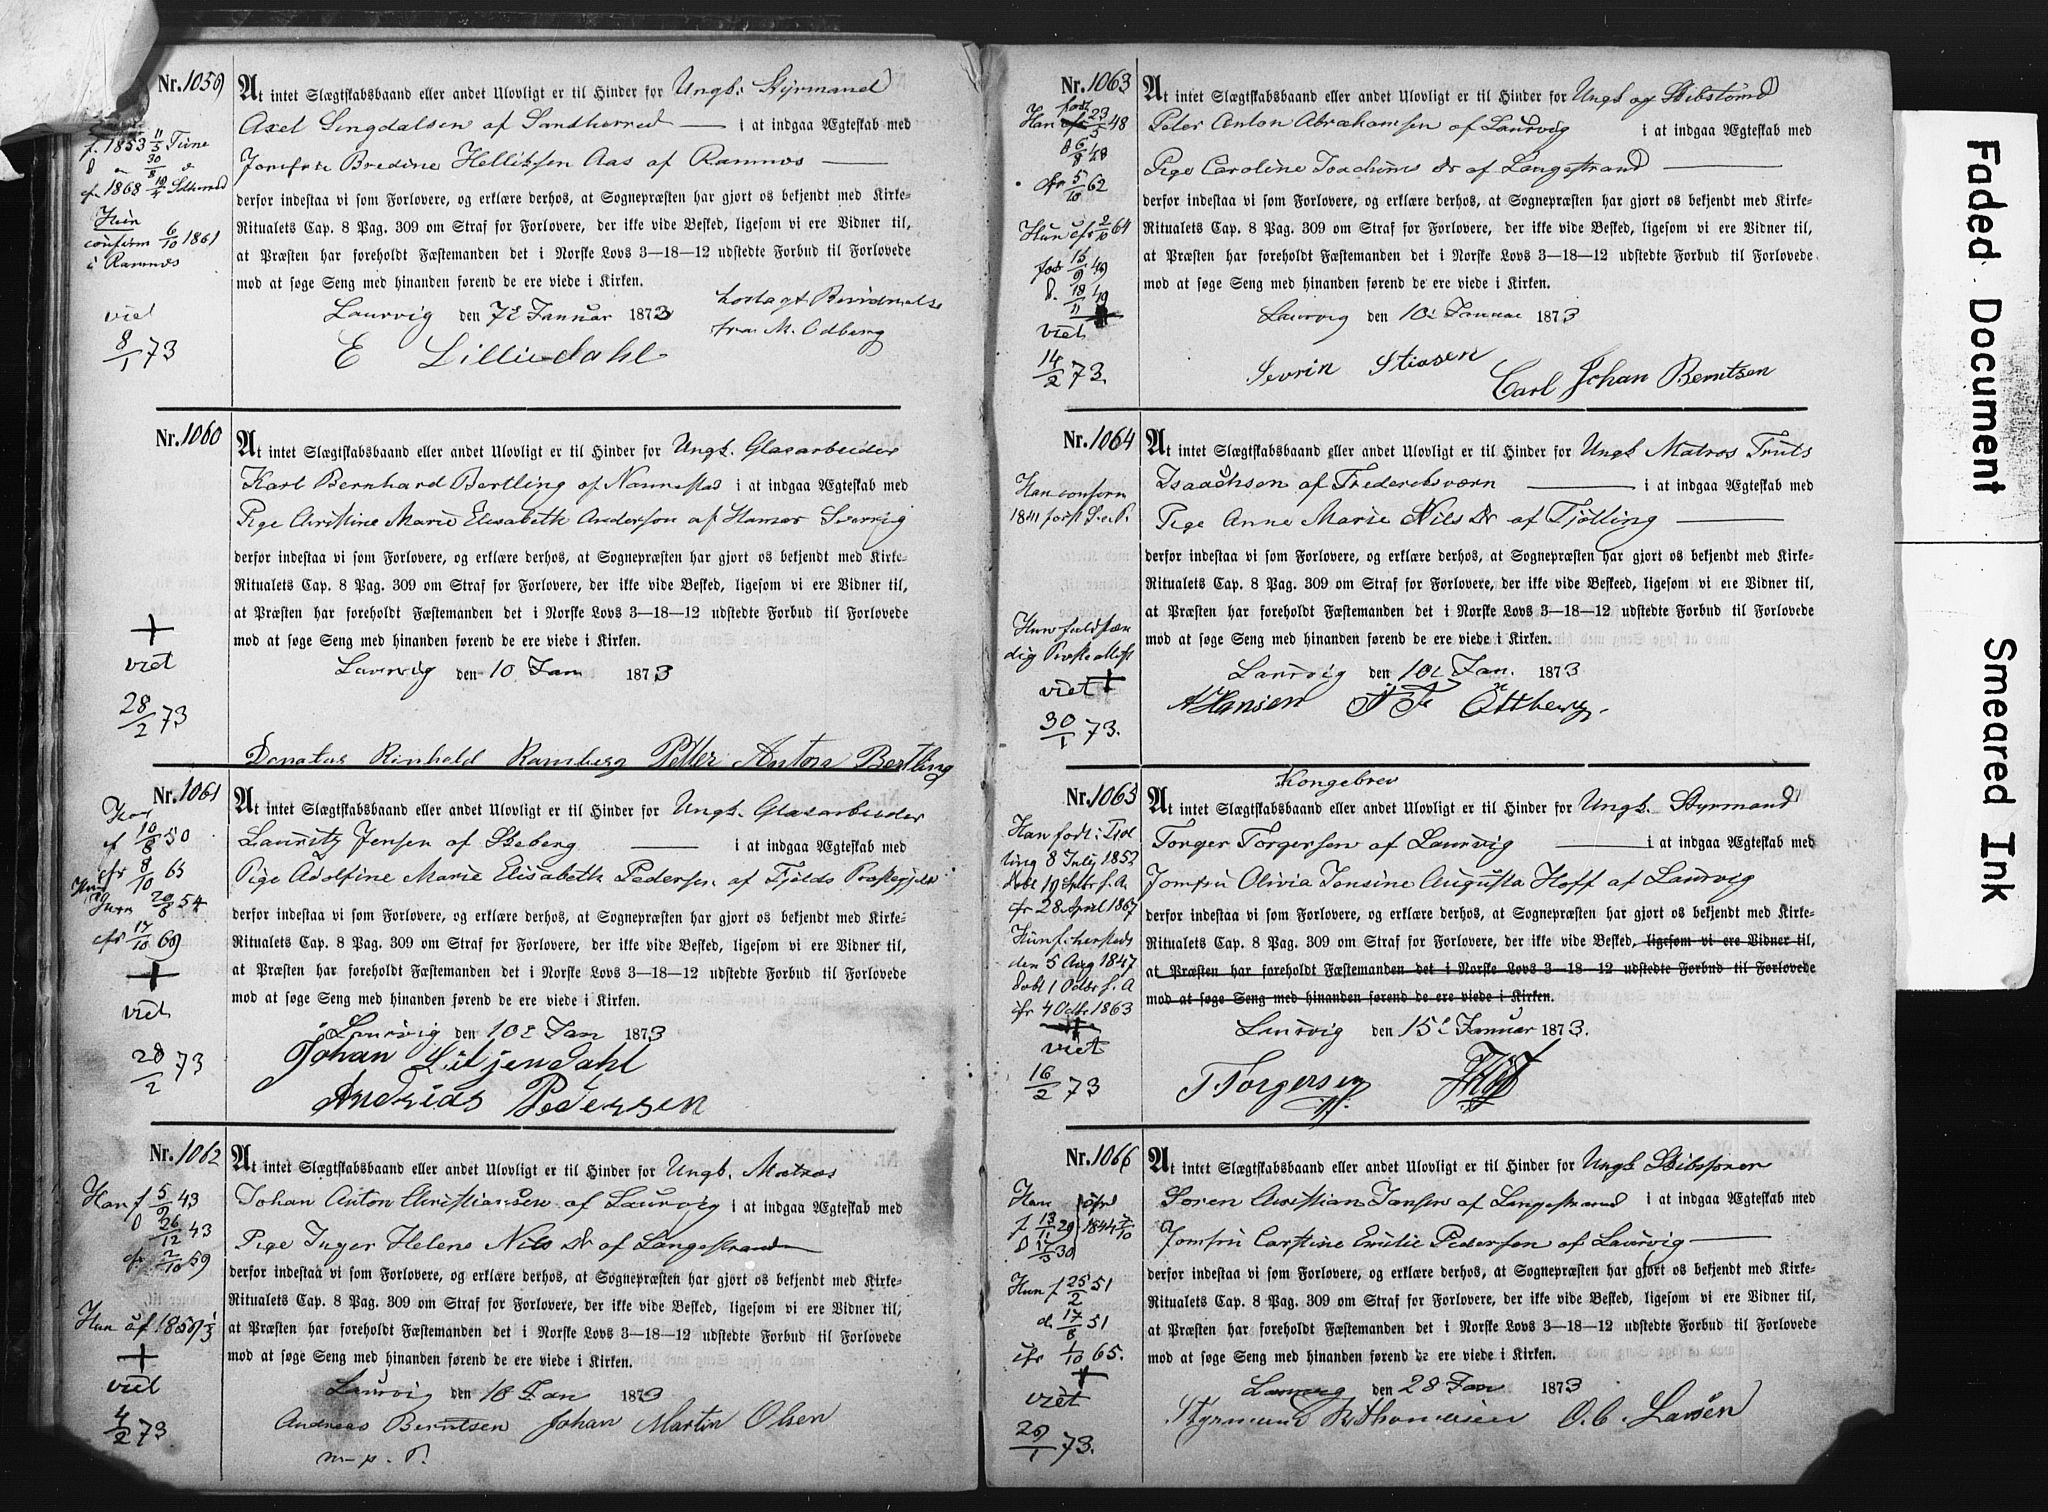 Nr. 1059
At intet Slægtskabsbaand eller andet Ulovligt er til Hinder for Ungk. Styrmand
Axel Lingdalsen af Sandherred i at indgaa Ægteskab med
Jomfru Bredine Helliksen Aas af Ramnæs
derfor indestaa vi som Forlovere, og erklære derhos, at Sognepræsten har gjort os bekjendt med Kirke-
Ritualets Cap. 8 Pag. 309 om Straf for Forlovere, der ikke vide Besked, ligesom vi ere Vidner til,
at Præsten har foreholdt Fæstemanden det i Norske Lovs 3—18—12 udstedte Forbud til Forlovede
mod at søge Seng med hinanden førend de ere viede i Kirken.
Laurvig den 7de Januar 1873
fra M. Odberg
E Lilliedahl
f. 1853 11/5
30/8
1868
confirm 6/10 1861
i Ramnæs
viet
8/1 73
Nr. 1060
At intet Slægtskabsbaand eller andet Ulovligt er til Hinder for Ungk. Glasarbeider
Karl Bernhard Bertling af Nannestad i at indgaa Ægteskab med
Pige Christine Marie Elisabeth Andersen af Hamar
derfor indestaa vi som Forlovere, og erklære derhos, at Sognepræsten har gjort os bekjendt med Kirke-
Ritualets Cap. 8 Pag. 309 om Straf for Forlovere, der ikke vide Besked, ligesom vi ere Vidner til,
at Præsten har foreholdt Fæstemanden det i Norske Lovs 3—18—12 udstedte Forbud til Forlovede
mod at søge Seng med hinanden førend de ere viede i Kirken.
Laurvig den 10 Jan 1873
Donatus Rinhold Ramberg Petter Anton Bertling
+
viet
28/2 73
Nr. 1061
At intet Slægtskabsbaand eller andet Ulovligt er til Hinder for Ungk. Glasarbeider
Lauritz Jensen af Skeberg i at indgaa Ægteskab med
Pige Adolfine Marie Elisabeth Pedersen af
derfor indestaa vi som Forlovere, og erklære derhos, at Sognepræsten har gjort os bekjendt med Kirke-
Ritualets Cap. 8 Pag. 309 om Straf for Forlovere, der ikke vide Besked, ligesom vi ere Vidner til,
at Præsten har foreholdt Fæstemanden det i Norske Lovs 3—18—12 udstedte Forbud til Forlovede
mod at søge Seng med hinanden førend de ere viede i Kirken.
Laurvig den 10de Jan 1873
Johan Liljendahl
Andreas Pedersen
f 10/8 50
cfr 8/10 65
Hun 20/8 54
cfr 17/10 69
+
viet
28/2 73
Nr. 1062
At intet Slægtskabsbaand eller andet Ulovligt er til Hinder for Ungk. Matros
Johan Anton Christiansen af Laurvig i at indgaa Ægteskab med
Pige Inger Helene Nils Dr af Langestrand
derfor indestaa vi som Forlovere, og erklære derhos, at Sognepræsten har gjort os bekjendt med Kirke-
Ritualets Cap. 8 Pag. 309 om Straf for Forlovere, der ikke vide Besked, ligesom vi ere Vidner til,
at Præsten har foreholdt Fæstemanden det i Norske Lovs 3—18—12 udstedte Forbud til Forlovede
mod at søge Seng med hinanden førend de ere viede i Kirken.
Laurvig den 18 Jan 1873
Andreas Berntsen Johan Martin Olsen
m. p. P.
Han f 5/9 43
d 26/12 43
cfr 2/10 59
Hun cf 1859
+
viet
4/2 73
Nr. 1063
At intet Slægtskabsbaand eller andet Ulovligt er til Hinder for Ungk og Skibstømd
Peter Anton Abrahamsen af Laurvig i at indgaa Ægteskab med
Pige Caroline Joachims Dr af Langestrand
derfor indestaa vi som Forlovere, og erklære derhos, at Sognepræsten har gjort os bekjendt med Kirke-
Ritualets Cap. 8 Pag. 309 om Straf for Forlovere, der ikke vide Besked, ligesom vi ere Vidner til,
at Præsten har foreholdt Fæstemanden det i Norske Lovs 3—18—12 udstedte Forbud til Forlovede
mod at søge Seng med hinanden førend de ere viede i Kirken.
Laurvig den 10de Januar 1873
Sevrin Stiasen Carl Johan Berntsen
Han født 23/5 48
d 6/8 48
cfr 5/10 62
Hun cfr 2/10 64
født 15/9 49
d. 18/11 49
+
viet
14/2 73.
Nr. 1064
At intet Slægtskabsbaand eller andet Ulovligt er til Hinder for Ungk Matros Truls
Isaachsen af Frederiksværn i at indgaa Ægteskab med
Pige Anne Marie Nils Dr af Tjølling
derfor indestaa vi som Forlovere, og erklære derhos, at Sognepræsten har gjort os bekjendt med Kirke-
Ritualets Cap. 8 Pag. 309 om Straf for Forlovere, der ikke vide Beskeed, ligesom vi ere Vidner til,
at Præsten har foreholdt Fæstemanden det i Norske Lovs 3—18—12 udstedte Forbud til Forlovede
mod at søge Seng med hinanden førend de ere viede i Kirken.
Laurvig den 10de Jan. 1873
A Hansen Ottberg.
Han conform
Hun fuldstæn
dig
viet +
30/1 73.
Nr. 1065
Kongebrev
At intet Slægtskabsbaand eller andet Ulovligt er til Hinder for Ungk. Styrmand
Torger Torgersen af Laurvig i at indgaa Ægteskab med
Jomfru Olivia Jensine Augusta Hoff af Laurvig
derfor indestaa vi som Forlovere, og erklære derhos, at Sognepræsten har gjort os bekjendt med Kirke-
Ritualets Cap. 8 Pag. 309 om Straf for Forlovere, der ikke vide Besked, ligesom vi ere Vidner til,
at Præsten har foreholdt Fæstemanden det i Norske Lovs 3—18—12 udstedte Forbud til Forlovede
mod at søge Seng med hinanden førend de ere viede i Kirken.
Laurvig den 15de Januar 1873.
T Torgersen
Han født i Tjøl
ling 8 July 1852
døbt 19 Septbr s. A.
cfr 28 April 1867
Hun f. hersteds
den 5 Aug 1847
døbt 1 Octbr s. A
cfr 4 Octbr 1863
+
viet
16/2 73
Nr. 1066
At intet Slægtskabsbaand eller andet Ulovligt er til Hinder for Ungk Skibsfører
Søren Christian Jansen af Langestrand i at indgaa Ægteskab med
Jomfru Carstine Emilie Pedersen af Laurvig
derfor indestaa vi som Forlovere, og erklære derhos, at Sognepræsten har gjort os bekjendt med Kirke-
Ritualets Cap. 8 Pag. 309 om Straf for Forlovere, der ikke vide Besked, ligesom vi ere Vidner til,
at Præsten har foreholdt Fæstemanden det i Norske Lovs 3—18—12 udstedte Forbud til Forlovede
mod at søge Seng med hinanden førend de ere viede i Kirken.
Laurvig den 28 Jan 1873
Styrmand O. C. Larsen
Han cfr
f 13/11 29 1844
d 17/3 30
Hun f 25/2 51
d. 17/8 51
cfr 1/10 65.
+
viet
29/1 73.
Faded Document
Smeared Ink